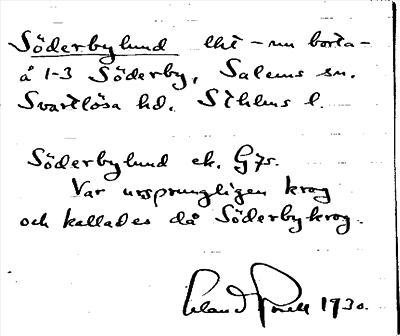 Söderbylund lht - nu borta -
å 1-3 Söderby, Salems sn.
Svartlösa hd. Sthlms l.
Söderbylund ek. G7r.
Var ursprungligen krog
och kallades då Söderbykrog.
1930.